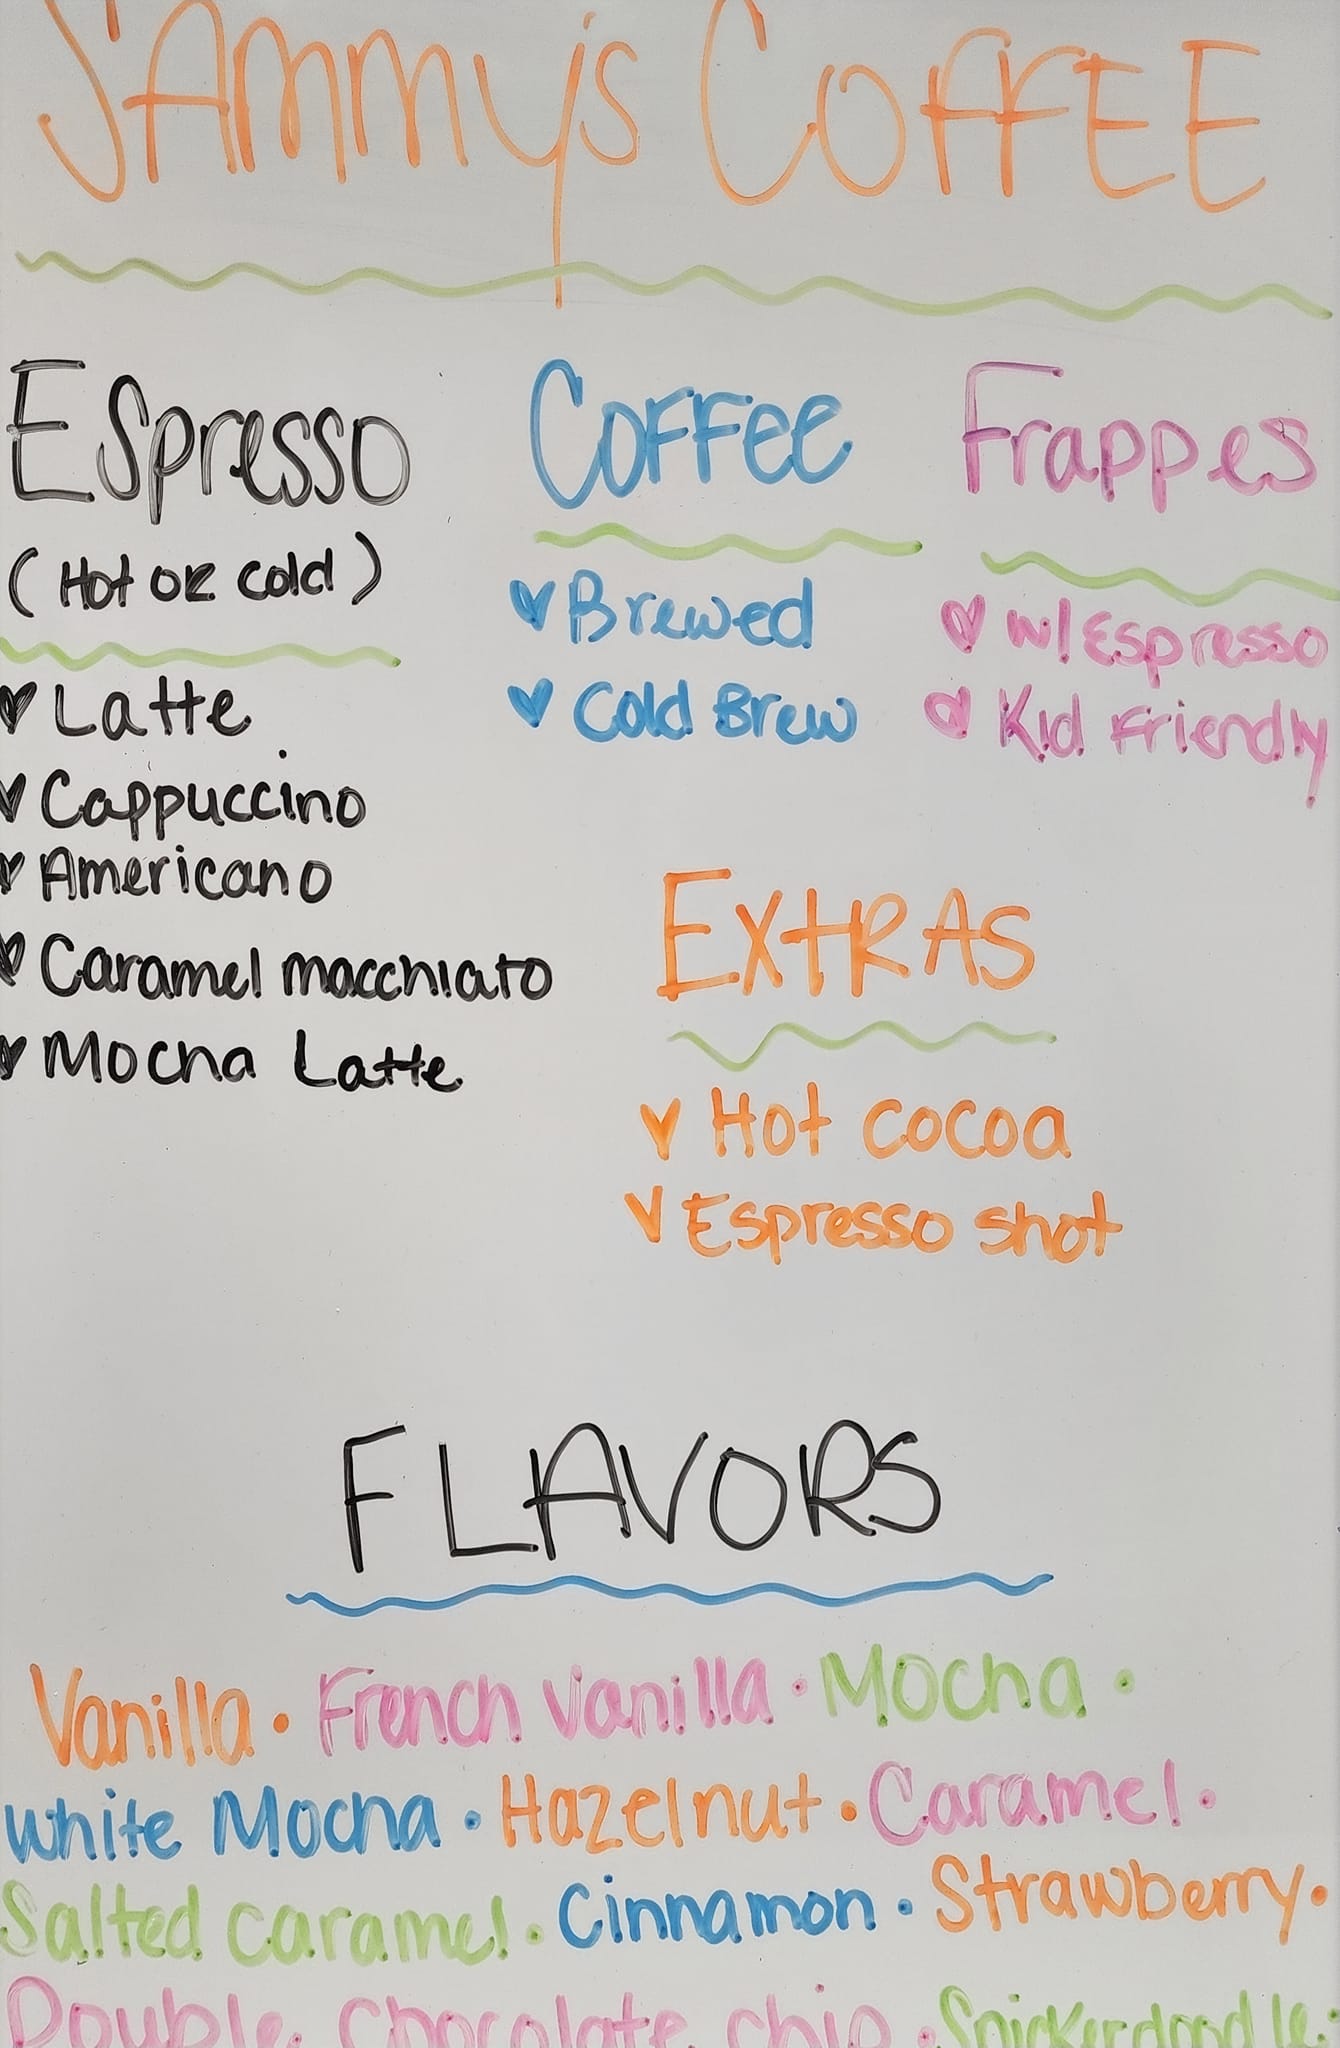 SAmmy's COFFEE
Espresso
(Hot or cold)
Latte
Cappuccino
Americano
Caramel macchiato
Mocha Latte
Coffee
Brewed
Cold Brew
Frappes
w/Espresso
Kid Friendly
Extras
Hot cocoa
Espresso shot
FLAVORS
Vanilla • French Vanilla • Mocha •
White Mocha • Hazelnut • Caramel •
Salted caramel • Cinnamon • Strawberry •
Double Chocolate chip • Snickerdoodle •